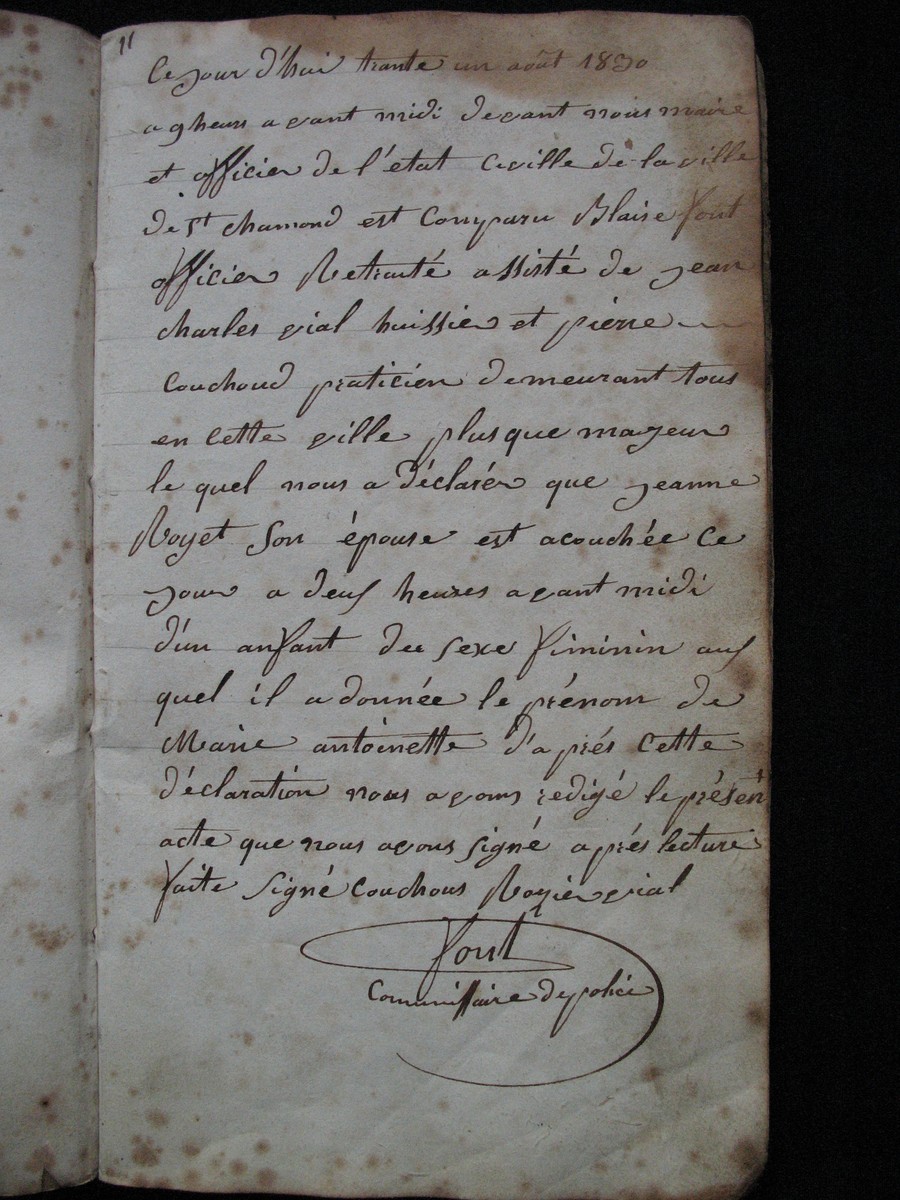 11
Ce jour d'hui trante un août 1830
a 9 heurs avant midi devant nous maire
et officier de l'état Civille de la ville
de St chamond est Comparu Blaise font
officier Retraité assisté de jean
charles vial huissier et pierre
Couchoud praticien demeurant tous
en Cette ville plus que majeur
le quel nous a déclarér que jeanne
Royet Son épouse est acouchée Ce
jour a deux heures avant midi
d'un anfant du sexe fiminin aux
quel il a donnée le prénom de
Marie antoinette d'aprés Cette
déclaration nous avons redigé le présent
acte que nous avons signé aprés lecture
faite Signé Couchous Royier vial
font
Commissaire de police